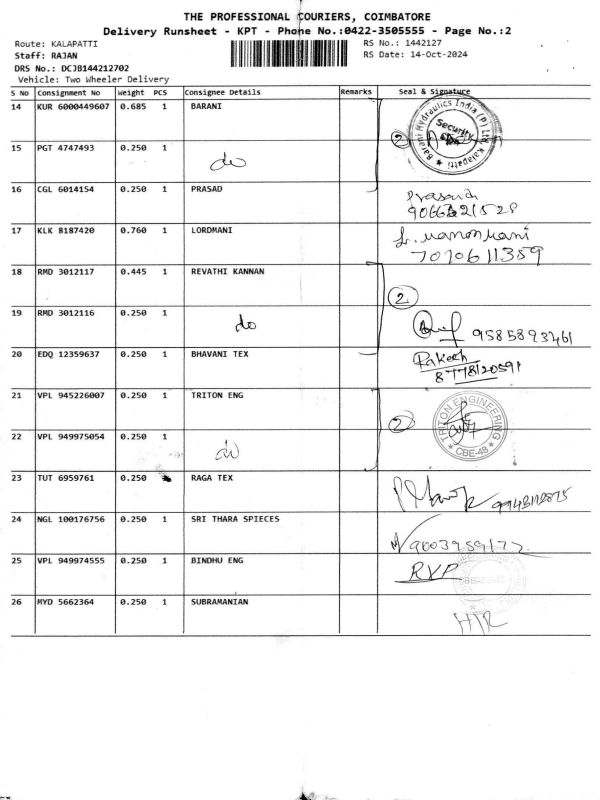 THE PROFESSIONAL COURIERS, COIMBATORE
Delivery Runsheet - KPT - Phone No.:0422-3505555 - Page No.:2
Route: KALAPATTI RS No.: 1442127
Staff: RAJAN RS Date: 14-Oct-2024
DRS No.: DCJB144212702
Vehicle: Two Wheeler Delivery
S No Consignment No Weight PCS Consignee Details Remarks Seal & Signature
14 KUR 6000449607 0.685 1 BARANI
Barani Hydraulics India (P) Ltd Kalapatti
Security
2
15 PGT 4747493 0.250 1 do
16 CGL 6014154 0.250 1 PRASAD Prasad
17 KLK 8187420 0.760 1 LORDMANI
7070611389
18 RMD 3012117 0.445 1 REVATHI KANNAN 2
19 RMD 3012116 0.250 1 do 9585893461
20 EDQ 12359637 0.250 1 BHAVANI TEX Rakesh
8778120591
21 VPL 945226007 0.250 1 TRITON ENG 2
TRITON ENGINEERING
CBE-48
22 VPL 949975054 0.250 1 do
23 TUT 6959761 0.250 RAGA TEX
24 NGL 100176756 0.250 1 SRI THARA SPIECES
25 VPL 949974555 0.250 1 BINDHU ENG RVP
26 MYD 5662364 0.250 1 SUBRAMANIAN